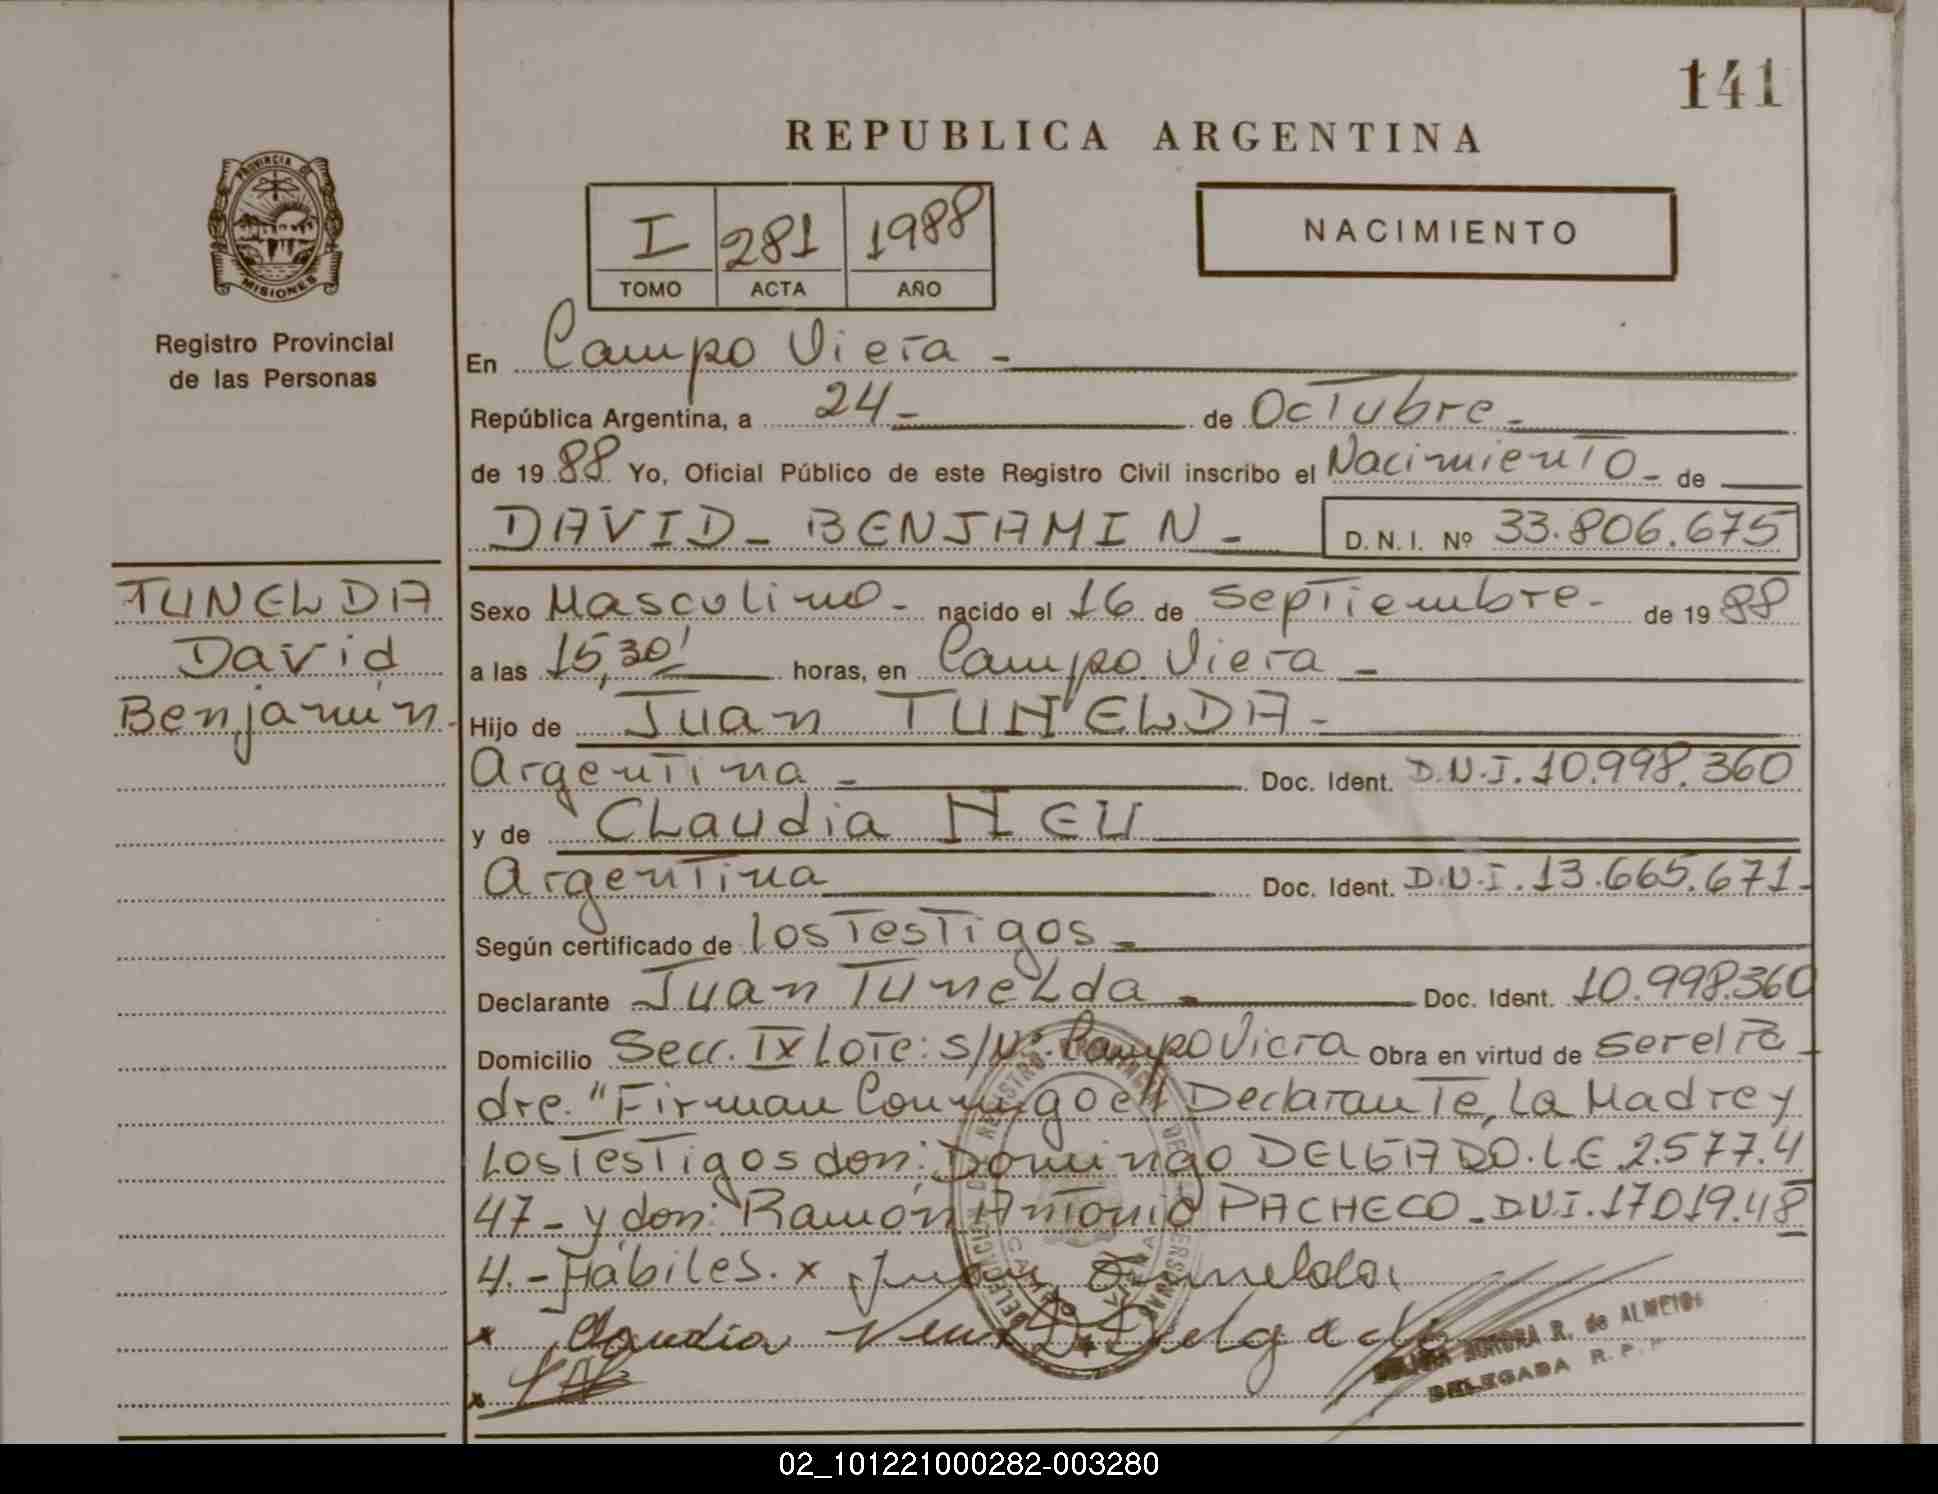 141
REPUBLICA ARGENTINA
PROVINCIA DE
MISIONES
Registro Provincial
de las Personas
I 281 1988
TOMO ACTA AÑO
NACIMIENTO
En Campo Viera -
República Argentina, a 24- de Octubre -
de 1988 Yo, Oficial Público de este Registro Civil inscribo el Nacimiento - de
DAVID - BENJAMIN - D.N.I. Nº 33.806.675
TUNELDA
David
Benjamin -
Sexo Masculino - nacido el 16 de septiembre - de 1988
a las 15,30' horas, en Campo Viera -
Hijo de Juan TUNELDA -
Argentina - Doc. Ident. D.N.I. 10.998.360
y de Claudia NEU
Argentina Doc. Ident. D.N.I. 13.665.671-
Según certificado de los Testigos -
Declarante Juan Tunelda - Doc. Ident. 10.998.360
Domicilio Secc. IX Lote: s/Nº. Campo Viera Obra en virtud de ser el Pa-
dre. "Firman Conmigo el Declarante, La Madre y
los Testigos don: Domingo DELGADO. L.E 2.577.4
47- y don: Ramón Antonio PACHECO - D.N.I. 17.019.48
4.- Hábiles. x Juan Tunelda
x Claudia Neu x D Delgado
R. de ALMEIDA
x
DELEGADA R. P.
02_101221000282-003280